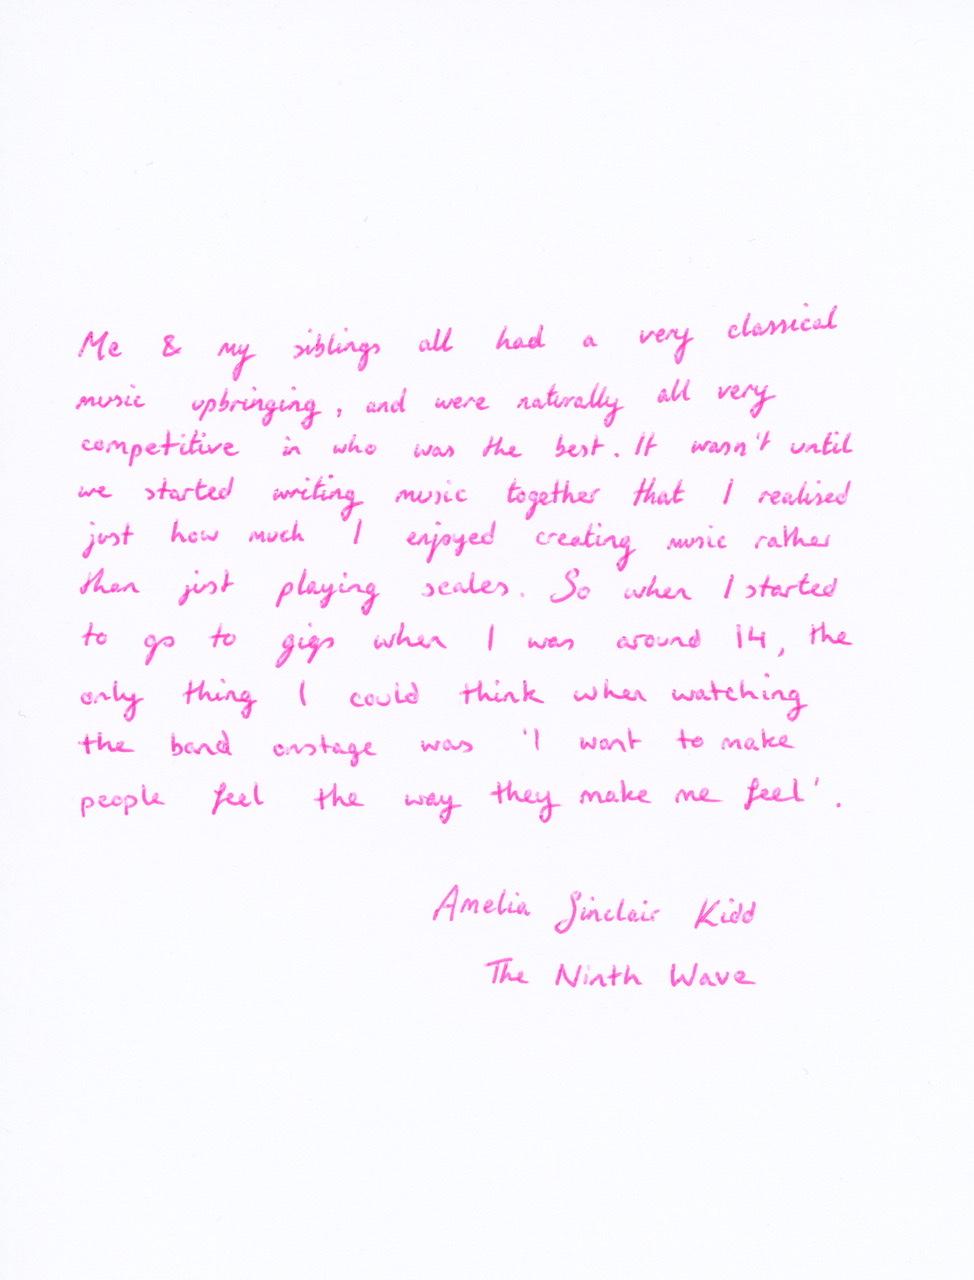 Me & my siblings all had a very classical
music upbringing, and were naturally all very
competitive in who was the best. It wasn't until
we started writing music together that I realised
just how much I enjoyed creating music rather
than just playing scales. So when I started
to go to gigs when I was around 14, the
only thing I could think when watching
the band onstage was 'I want to make
people feel the way they make me feel'.
Amelia Sinclair Kidd
The Ninth Wave